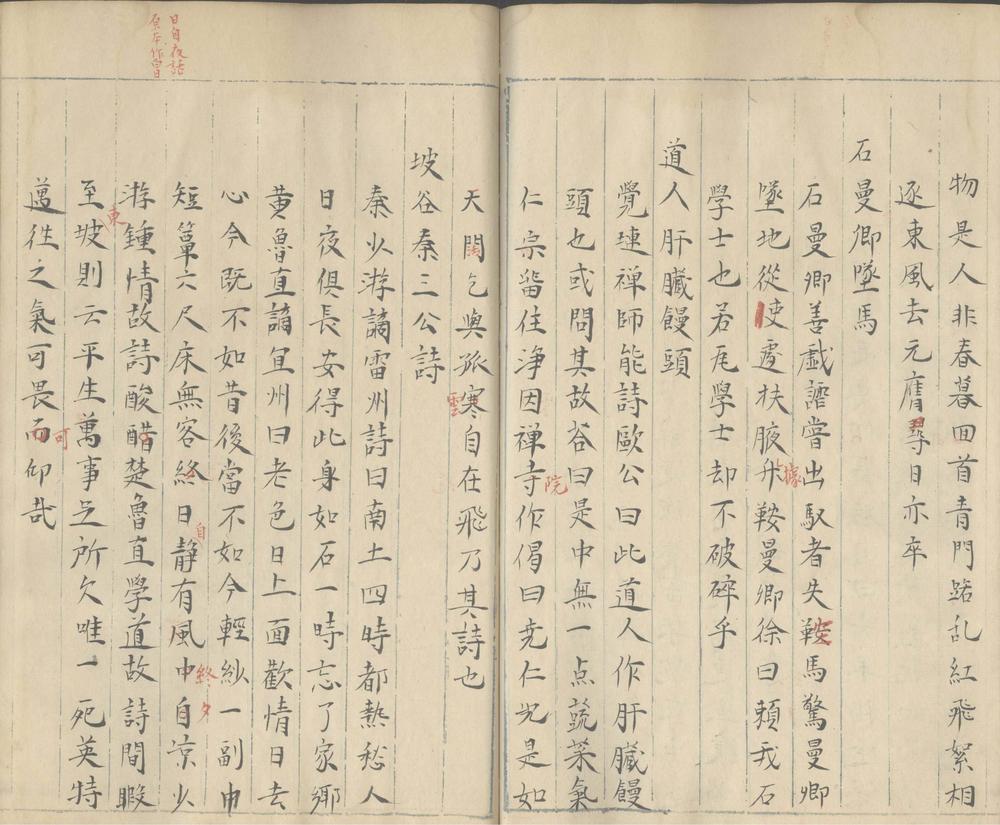 物是人非春暮回首青門路乱紅飛絮相
逐東風去元膺尋日亦卒
石曼卿墜馬
石曼卿善戲謔嘗出馭者失鞍馬驚曼卿
墜地從吏遽扶腋升鞍曼卿徐曰賴我石
據
學士也若瓦學士却不破碎乎
道人肝臟饅頭
覺璉禅師能詩歐公曰此道人作肝臟饅
頭也或問其故荅曰是中無一点蔬菜氣
仁宗畱住淨因禅寺作偈曰尭仁况是如
院
天闊乞與孤寒自在飛乃其詩也
雲
坡谷秦三公詩
秦少游謫雷州詩曰南土四時都熱愁人
日夜俱長安得此身如石一時忘了家鄉
黄魯直謫宜州曰老色日上面歡情日去
心今既不如昔後當不如今輕紗一副巾
短簟六尺床無客終日静有風中自凉少
自
終夕
游鍾情故詩酸醋楚魯直學道故詩間暇
至坡則云平生萬事足所欠唯一死英特
東
邁徃之氣可畏而仰哉
可
日自夜話
原本作曾日